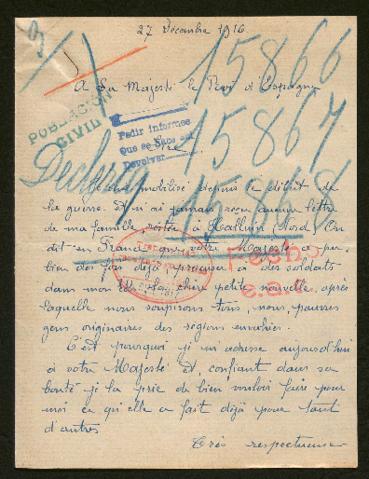 27 Décembre 1916
15866
A Sa Majesté le Roi d'Espagne
POBLACION
CIVIL
Pedir informes
que se
Devolver
15867
Sire,
15868
Je suis mobilisé depuis le début de
la guerre. Et n'ai jamais reçu aucune lettre
de ma famille restée à Halluin (Nord). On
dit en France que votre Majesté a pu
bien des fois déjà procurer à des soldats
dans mon cas la chère petite nouvelle après
laquelle nous soupirons tous, nous, pauvres
gens originaires des régions envahies.
Fecho
C'est pourquoi je m'adresse aujourd'hui
à votre Majesté et, confiant dans sa
bonté je la prie de bien vouloir faire pour
moi ce qu'elle a fait déjà pour tant
d'autres.
Très respectueuse